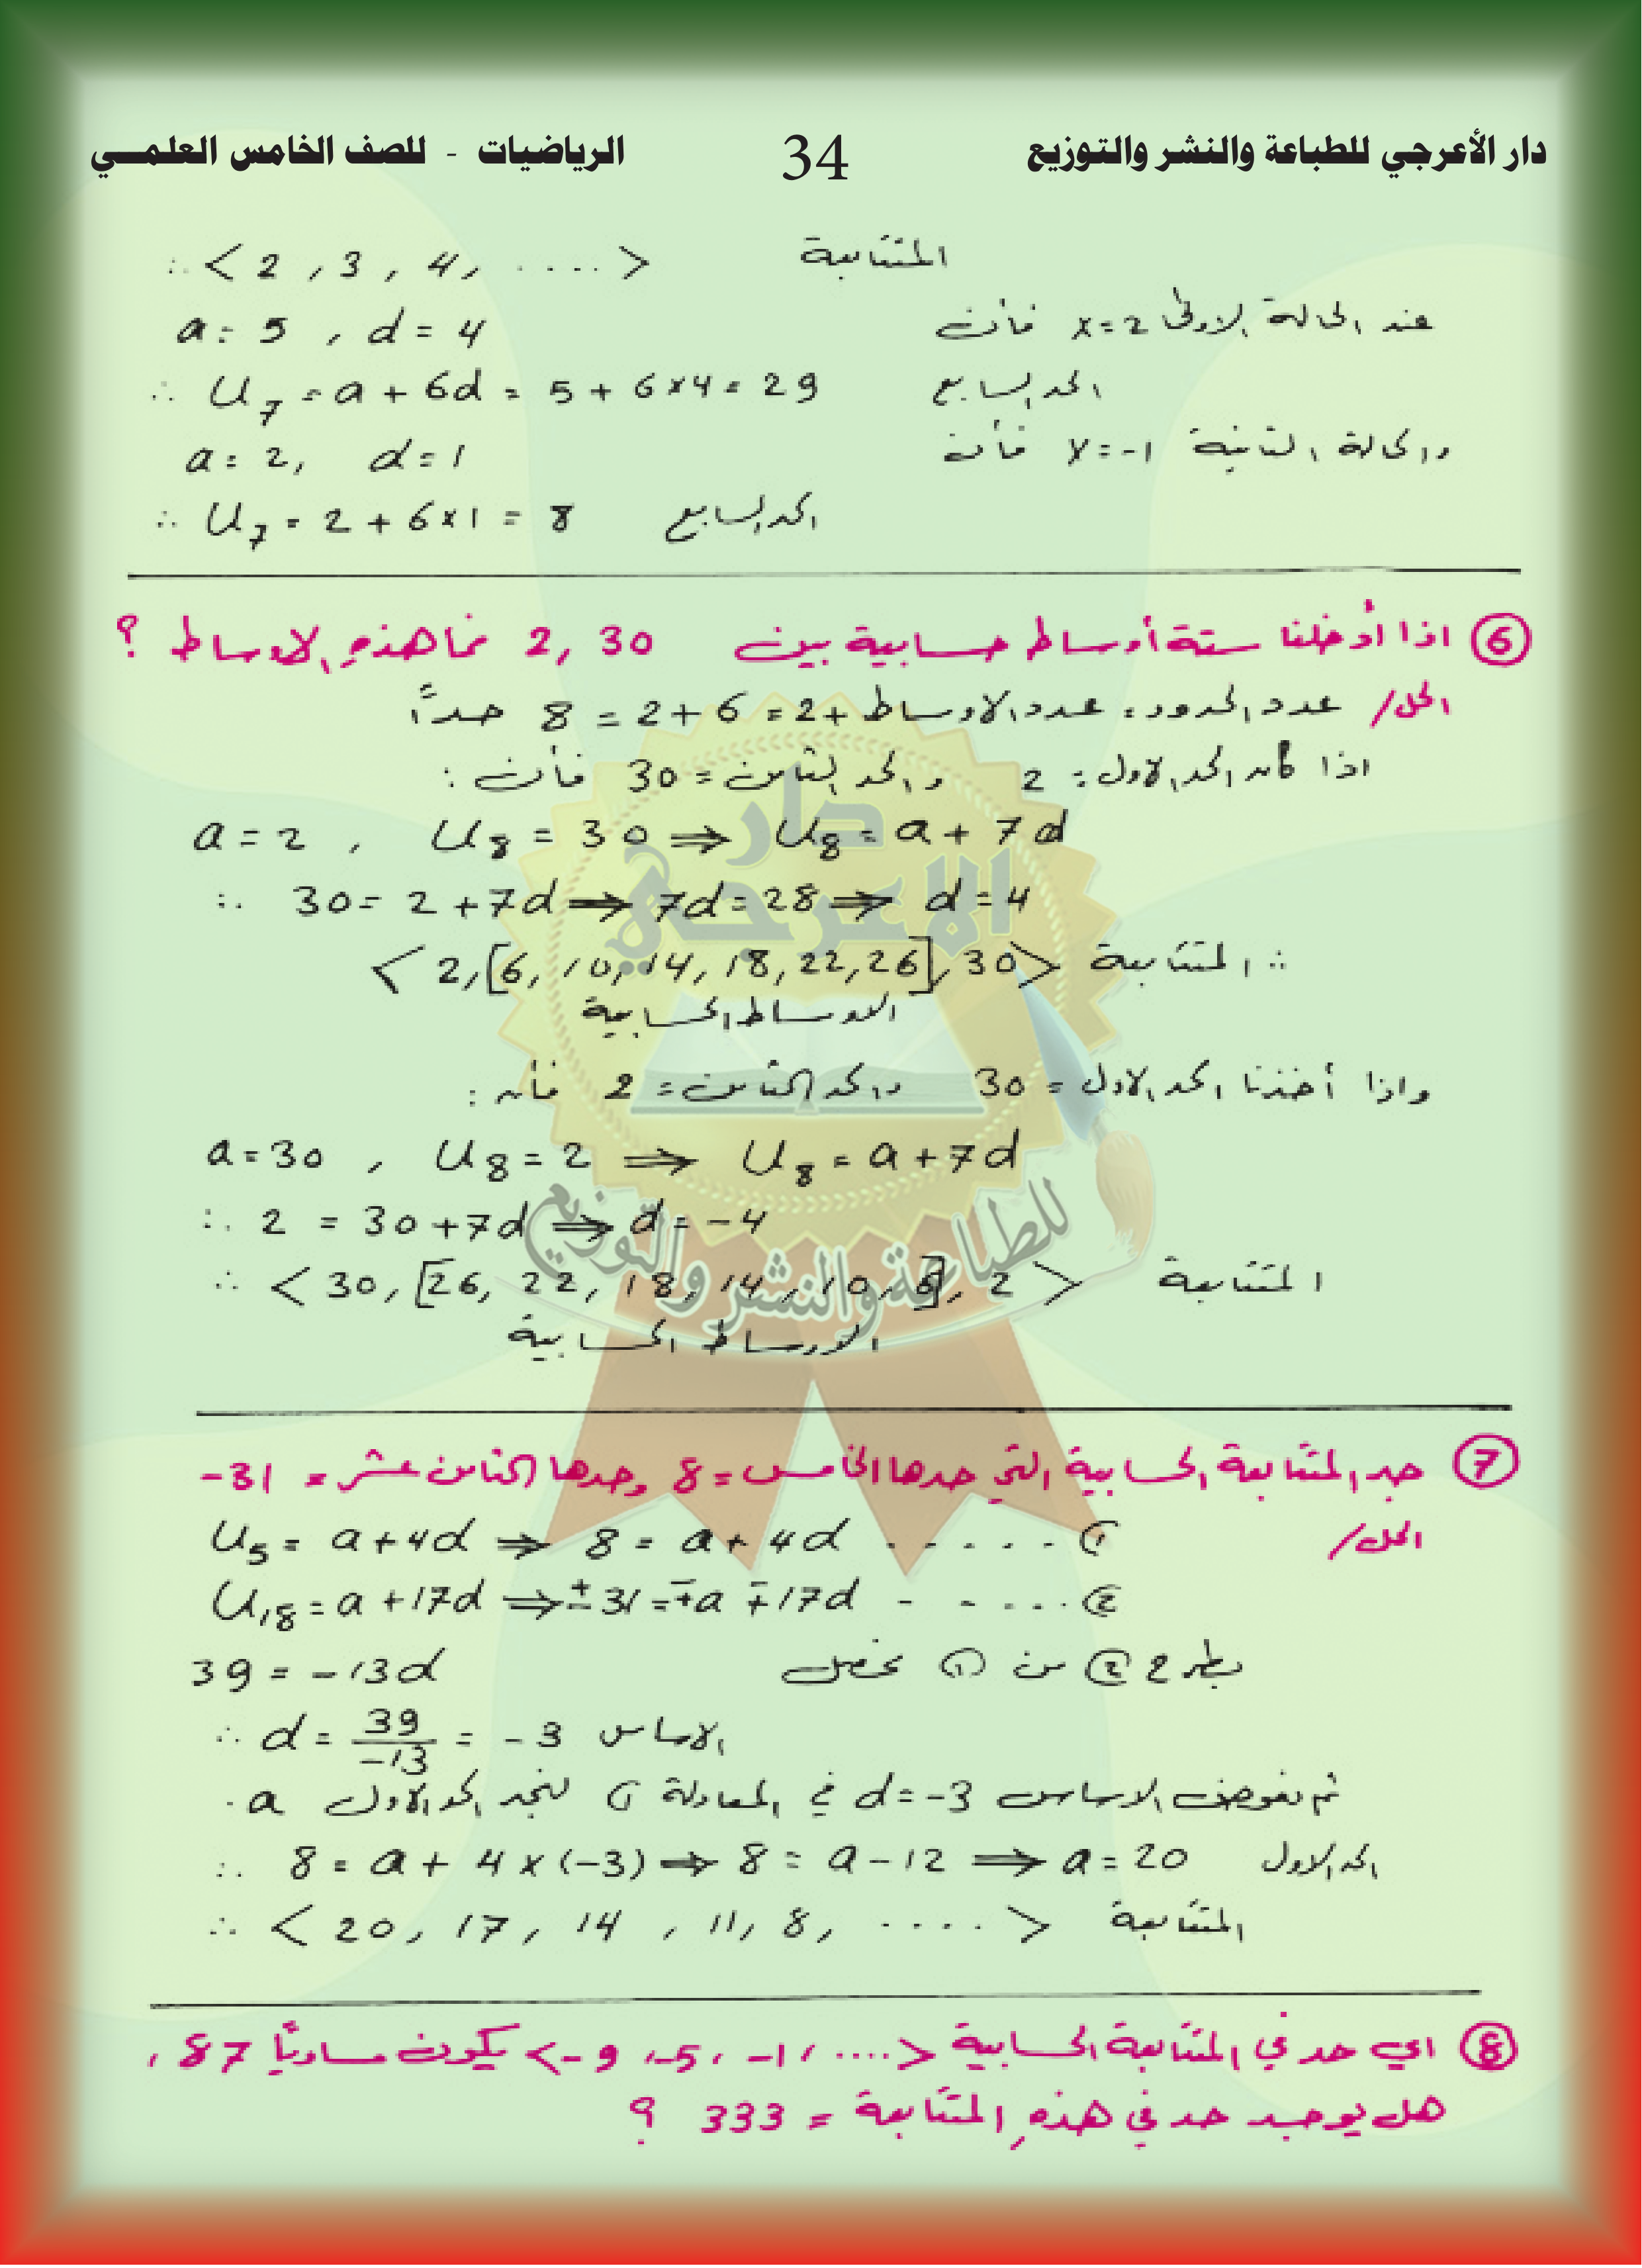 دار الأعرجي للطباعة والنشر والتوزيع 34 الرياضيات - للصف الخامس العلمي
المتتابعة ∴ < 2 , 3 , 4 , .... >
عند الحالة الاولى x=2 فأن a = 5 , d = 4
الحد السابع ∴ U₇ = a + 6d = 5 + 6×4 = 29
والحالة الثانية x=-1 فأن a = 2, d = 1
الحد السابع ∴ U₇ = 2 + 6×1 = 8
⑥ اذا أُدخلنا ستة أوساط حسابية بين 2, 30 فما هذه الاوساط ؟
الحل/ عدد الحدود = عدد الاوساط +2 = 6 + 2 = 8 حداً
اذا كان الحد الاول = 2 والحد الثامن = 30 فأن :
a = 2 , U₈ = 30 ⇒ U₈ = a + 7d
∴ 30 = 2 + 7d ⇒ 7d = 28 ⇒ d = 4
∴ المتتابعة < 2, [6, 10, 14, 18, 22, 26], 30 >
الاوساط الحسابية
واذا أخذنا الحد الاول = 30 والحد الثامن = 2 فأن :
a = 30 , U₈ = 2 ⇒ U₈ = a + 7d
∴ 2 = 30 + 7d ⇒ d = -4
المتتابعة ∴ < 30, [26, 22, 18, 14, 10, 6], 2 >
الاوساط الحسابية
⑦ جد المتتابعة الحسابية التي حدها الخامس = 8 وحدها الثامن عشر = -31
الحل/ U₅ = a + 4d ⇒ 8 = a + 4d ..... ①
U₁₈ = a + 17d ⇒ ±31 = ∓a ∓ 17d ..... ②
بطرح ② من ① نحصل 39 = -13d
∴ d = 39/-13 = -3 الاساس
ثم نعوض الاساس d = -3 في المعادلة ① لنجد الحد الاول a .
∴ 8 = a + 4 × (-3) ⇒ 8 = a - 12 ⇒ a = 20 الحد الاول
المتتابعة ∴ < 20, 17, 14, 11, 8, .... >
⑧ اي حد في المتتابعة الحسابية <-9, -5, -1, ....> يكون مساوياً 87 ,
هل يوجد حد في هذهِ المتتابعة = 333 ؟
دار
الاعرجي
للطباعة والنشر والتوزيع